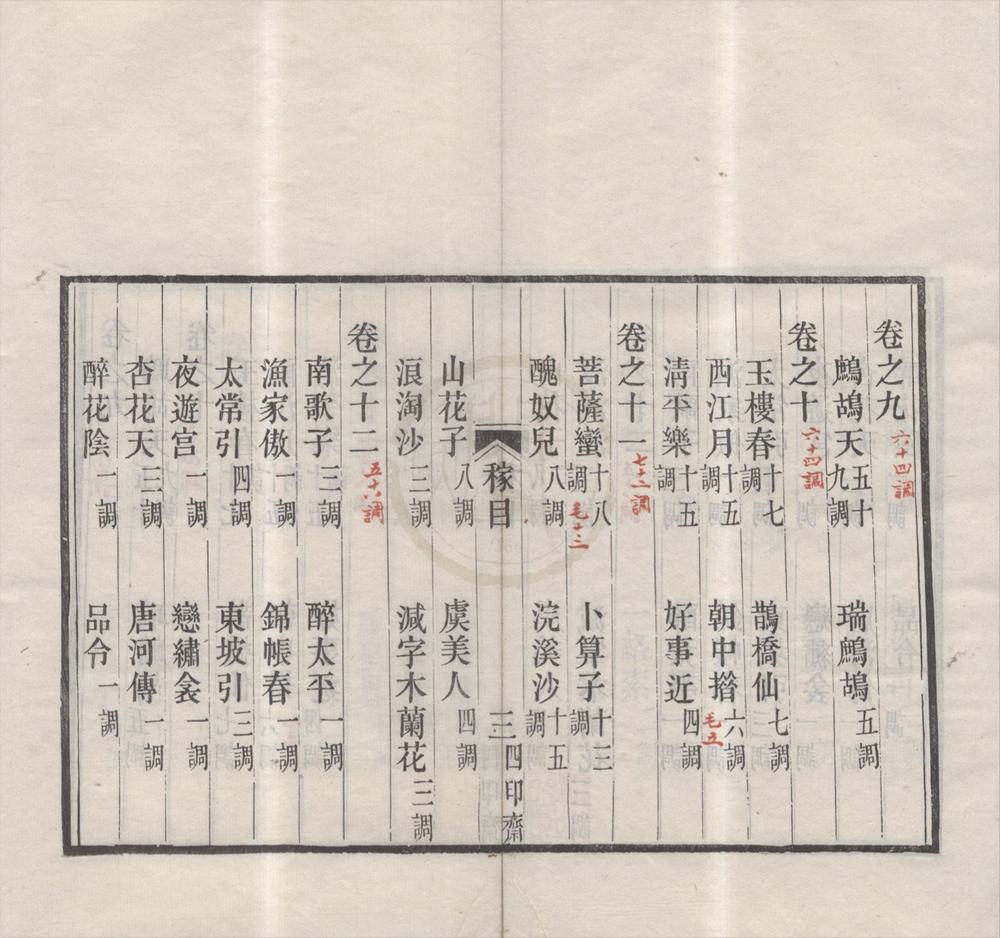 卷之九 六十四調
鷓鴣天五十九調 瑞鷓鴣五調
卷之十 六十四調
玉樓春十七調 鵲橋仙七調
西江月十五調 朝中措六調 毛五
清平樂十五調 好事近四調
卷之十一 七十二調
菩薩蠻十八調 毛十三 卜算子十三調
醜奴兒八調 浣溪沙十五調
稼目 三 四印齋
山花子八調 虞美人四調
浪淘沙三調 減字木蘭花三調
卷之十二 五十八調
南歌子三調 醉太平一調
漁家傲一調 錦帳春一調
太常引四調 東坡引三調
夜遊宮一調 戀繡衾一調
杏花天三調 唐河傳一調
醉花陰一調 品令一調